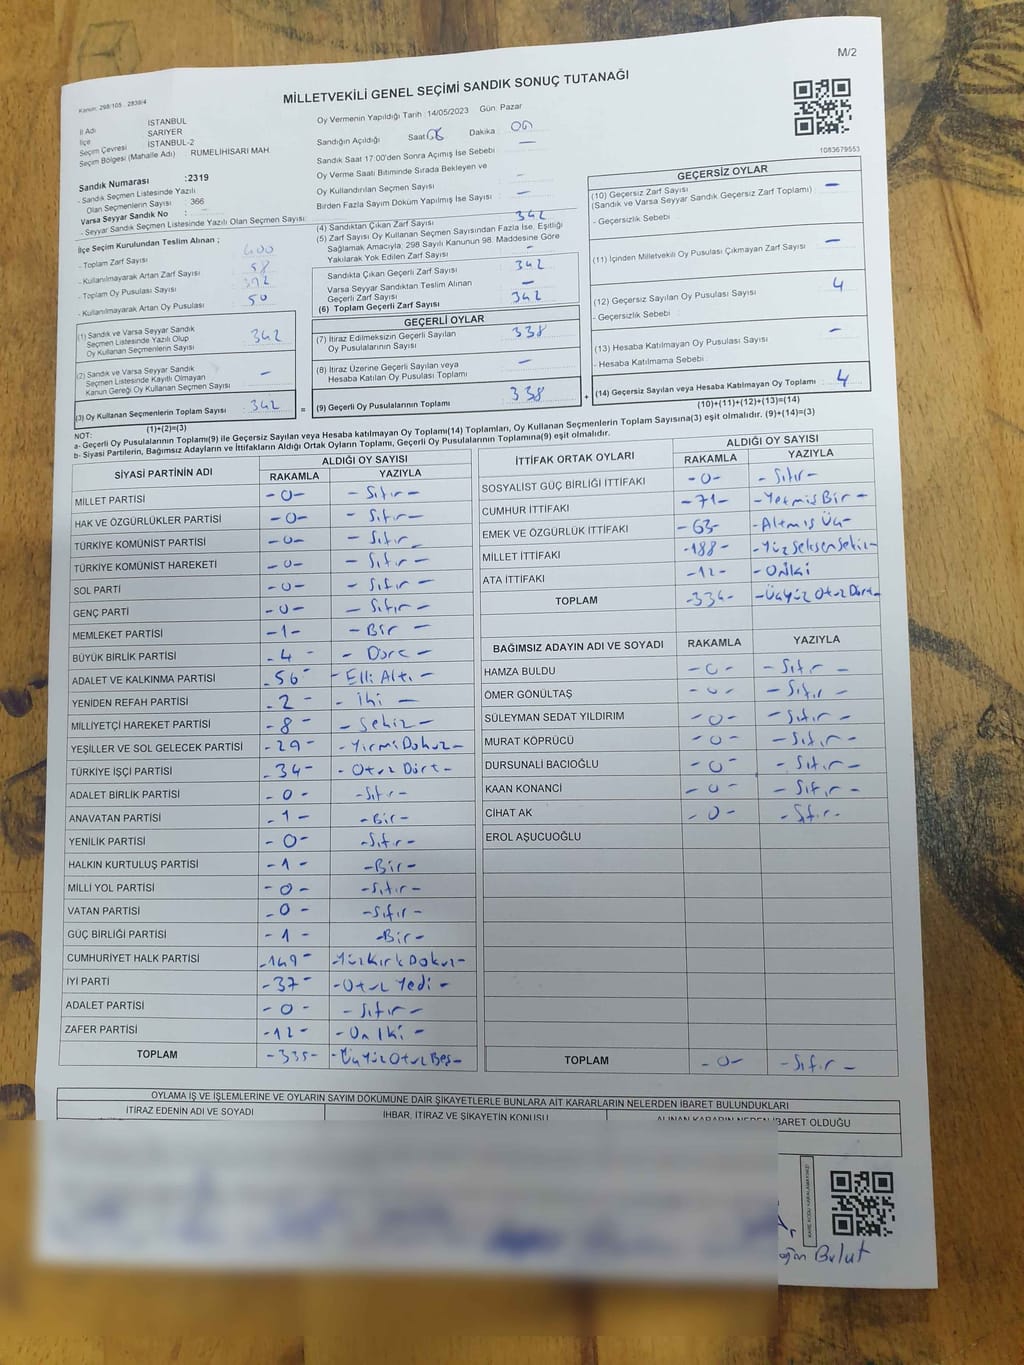 M/2
Kanun: 298/105 , 2839/4
MİLLETVEKİLİ GENEL SEÇİMİ SANDIK SONUÇ TUTANAĞI
İl Adı İSTANBUL
İlçe SARIYER
Seçim Çevresi İSTANBUL-2
Seçim Bölgesi (Mahalle Adı) RUMELİHİSARI MAH
Oy Vermenin Yapıldığı Tarih :14/05/2023 Gün: Pazar
Sandığın Açıldığı Saat Dakika :
Sandık Saat 17:00'den Sonra Açılmış İse Sebebi :
Oy Verme Saati Bitiminde Sırada Bekleyen ve
Oy Kullandırılan Seçmen Sayısı : -
Birden Fazla Sayım Döküm Yapılmış İse Sayısı : -
1083679553
Sandık Numarası :2319
- Sandık Seçmen Listesinde Yazılı
Olan Seçmenlerin Sayısı : 366
Varsa Seyyar Sandık No :
- Seyyar Sandık Seçmen Listesinde Yazılı Olan Seçmen Sayısı:
İlçe Seçim Kurulundan Teslim Alınan ;
- Toplam Zarf Sayısı : 400
- Kullanılmayarak Artan Zarf Sayısı : 58
- Toplam Oy Pusulası Sayısı : 392
- Kullanılmayarak Artan Oy Pusulası : 50
(1) Sandık ve Varsa Seyyar Sandık
Seçmen Listesinde Yazılı Olup
Oy Kullanan Seçmenlerin Sayısı : 342
(2) Sandık ve Varsa Seyyar Sandık
Seçmen Listesinde Kayıtlı Olmayan
Kanun Gereği Oy Kullanan Seçmen Sayısı : -
(3) Oy Kullanan Seçmenlerin Toplam Sayısı : 342
(1)+(2)=(3)
(4) Sandıktan Çıkan Zarf Sayısı : 342
(5) Zarf Sayısı Oy Kullanan Seçmen Sayısından Fazla İse, Eşitliği
Sağlamak Amacıyla; 298 Sayılı Kanunun 98. Maddesine Göre
Yakılarak Yok Edilen Zarf Sayısı : -
Sandıkta Çıkan Geçerli Zarf Sayısı : 342
Varsa Seyyar Sandıktan Teslim Alınan
Geçerli Zarf Sayısı : -
(6) Toplam Geçerli Zarf Sayısı : 342
GEÇERLİ OYLAR
(7) İtiraz Edilmeksizin Geçerli Sayılan
Oy Pusulalarının Sayısı : 338
(8) İtiraz Üzerine Geçerli Sayılan veya
Hesaba Katılan Oy Pusulası Toplamı : -
= (9) Geçerli Oy Pusulalarının Toplamı : 338
GEÇERSİZ OYLAR
(10) Geçersiz Zarf Sayısı : -
(Sandık ve Varsa Seyyar Sandık Geçersiz Zarf Toplamı)
- Geçersizlik Sebebi :
(11) İçinden Milletvekili Oy Pusulası Çıkmayan Zarf Sayısı : -
(12) Geçersiz Sayılan Oy Pusulası Sayısı : 4
- Geçersizlik Sebebi :
(13) Hesaba Katılmayan Oy Pusulası Sayısı : -
- Hesaba Katılmama Sebebi :
+ (14) Geçersiz Sayılan veya Hesaba Katılmayan Oy Toplamı : 4
(10)+(11)+(12)+(13)=(14)
NOT:
a- Geçerli Oy Pusulalarının Toplamı(9) ile Geçersiz Sayılan veya Hesaba katılmayan Oy Toplamı(14) Toplamları, Oy Kullanan Seçmenlerin Toplam Sayısına(3) eşit olmalıdır. (9)+(14)=(3)
b- Siyasi Partilerin, Bağımsız Adayların ve İttifakların Aldığı Ortak Oyların Toplamı, Geçerli Oy Pusulalarının Toplamına(9) eşit olmalıdır.
SİYASİ PARTİNİN ADI ALDIĞI OY SAYISI
RAKAMLA YAZIYLA
MİLLET PARTİSİ -0- -Sıfır-
HAK VE ÖZGÜRLÜKLER PARTİSİ -0- -Sıfır-
TÜRKİYE KOMÜNİST PARTİSİ -0- -Sıfır-
TÜRKİYE KOMÜNİST HAREKETİ -0- -Sıfır-
SOL PARTİ -0- -Sıfır-
GENÇ PARTİ -0- -Sıfır-
MEMLEKET PARTİSİ -1- -Bir-
BÜYÜK BİRLİK PARTİSİ -4- -Dört-
ADALET VE KALKINMA PARTİSİ -56- -Elli Altı-
YENİDEN REFAH PARTİSİ -2- -İki-
MİLLİYETÇİ HAREKET PARTİSİ -8- -Sekiz-
YEŞİLLER VE SOL GELECEK PARTİSİ -29- -Yirmi Dokuz-
TÜRKİYE İŞÇİ PARTİSİ -34- -Otuz Dört-
ADALET BİRLİK PARTİSİ -0- -Sıfır-
ANAVATAN PARTİSİ -1- -Bir-
YENİLİK PARTİSİ -0- -Sıfır-
HALKIN KURTULUŞ PARTİSİ -1- -Bir-
MİLLİ YOL PARTİSİ -0- -Sıfır-
VATAN PARTİSİ -0- -Sıfır-
GÜÇ BİRLİĞİ PARTİSİ -1- -Bir-
CUMHURİYET HALK PARTİSİ -149- -Yüz Kırk Dokuz-
İYİ PARTİ -37- -Otuz Yedi-
ADALET PARTİSİ -0- -Sıfır-
ZAFER PARTİSİ -12- -On İki-
TOPLAM -335- -Üç Yüz Otuz Beş-
İTTİFAK ORTAK OYLARI ALDIĞI OY SAYISI
RAKAMLA YAZIYLA
SOSYALİST GÜÇ BİRLİĞİ İTTİFAKI -0- -Sıfır-
CUMHUR İTTİFAKI -71- -Yetmiş Bir-
EMEK VE ÖZGÜRLÜK İTTİFAKI -63- -Altmış Üç-
MİLLET İTTİFAKI -188- -Yüz Seksen Sekiz-
ATA İTTİFAKI -12- -On İki
TOPLAM -334- -Üçyüz Otuz Dört-
BAĞIMSIZ ADAYIN ADI VE SOYADI RAKAMLA YAZIYLA
HAMZA BULDU -0- -Sıfır-
ÖMER GÖNÜLTAŞ -0- -Sıfır-
SÜLEYMAN SEDAT YILDIRIM -0- -Sıfır-
MURAT KÖPRÜCÜ -0- -Sıfır-
DURSUNALİ BACIOĞLU -0- -Sıfır-
KAAN KONANCİ -0- -Sıfır-
CİHAT AK -0- -Sıfır-
EROL AŞUCUOĞLU
TOPLAM -0- -Sıfır-
OYLAMA İŞ VE İŞLEMLERİNE VE OYLARIN SAYIM DÖKÜMÜNE DAİR ŞİKAYETLERLE BUNLARA AİT KARARLARIN NELERDEN İBARET BULUNDUKLARI
İTİRAZ EDENİN ADI VE SOYADI İHBAR, İTİRAZ VE ŞİKAYETİN KONUSU ALINAN KARARIN NEDEN İBARET OLDUĞU
KARE KODU KARALAMAYINIZ!
Bulut